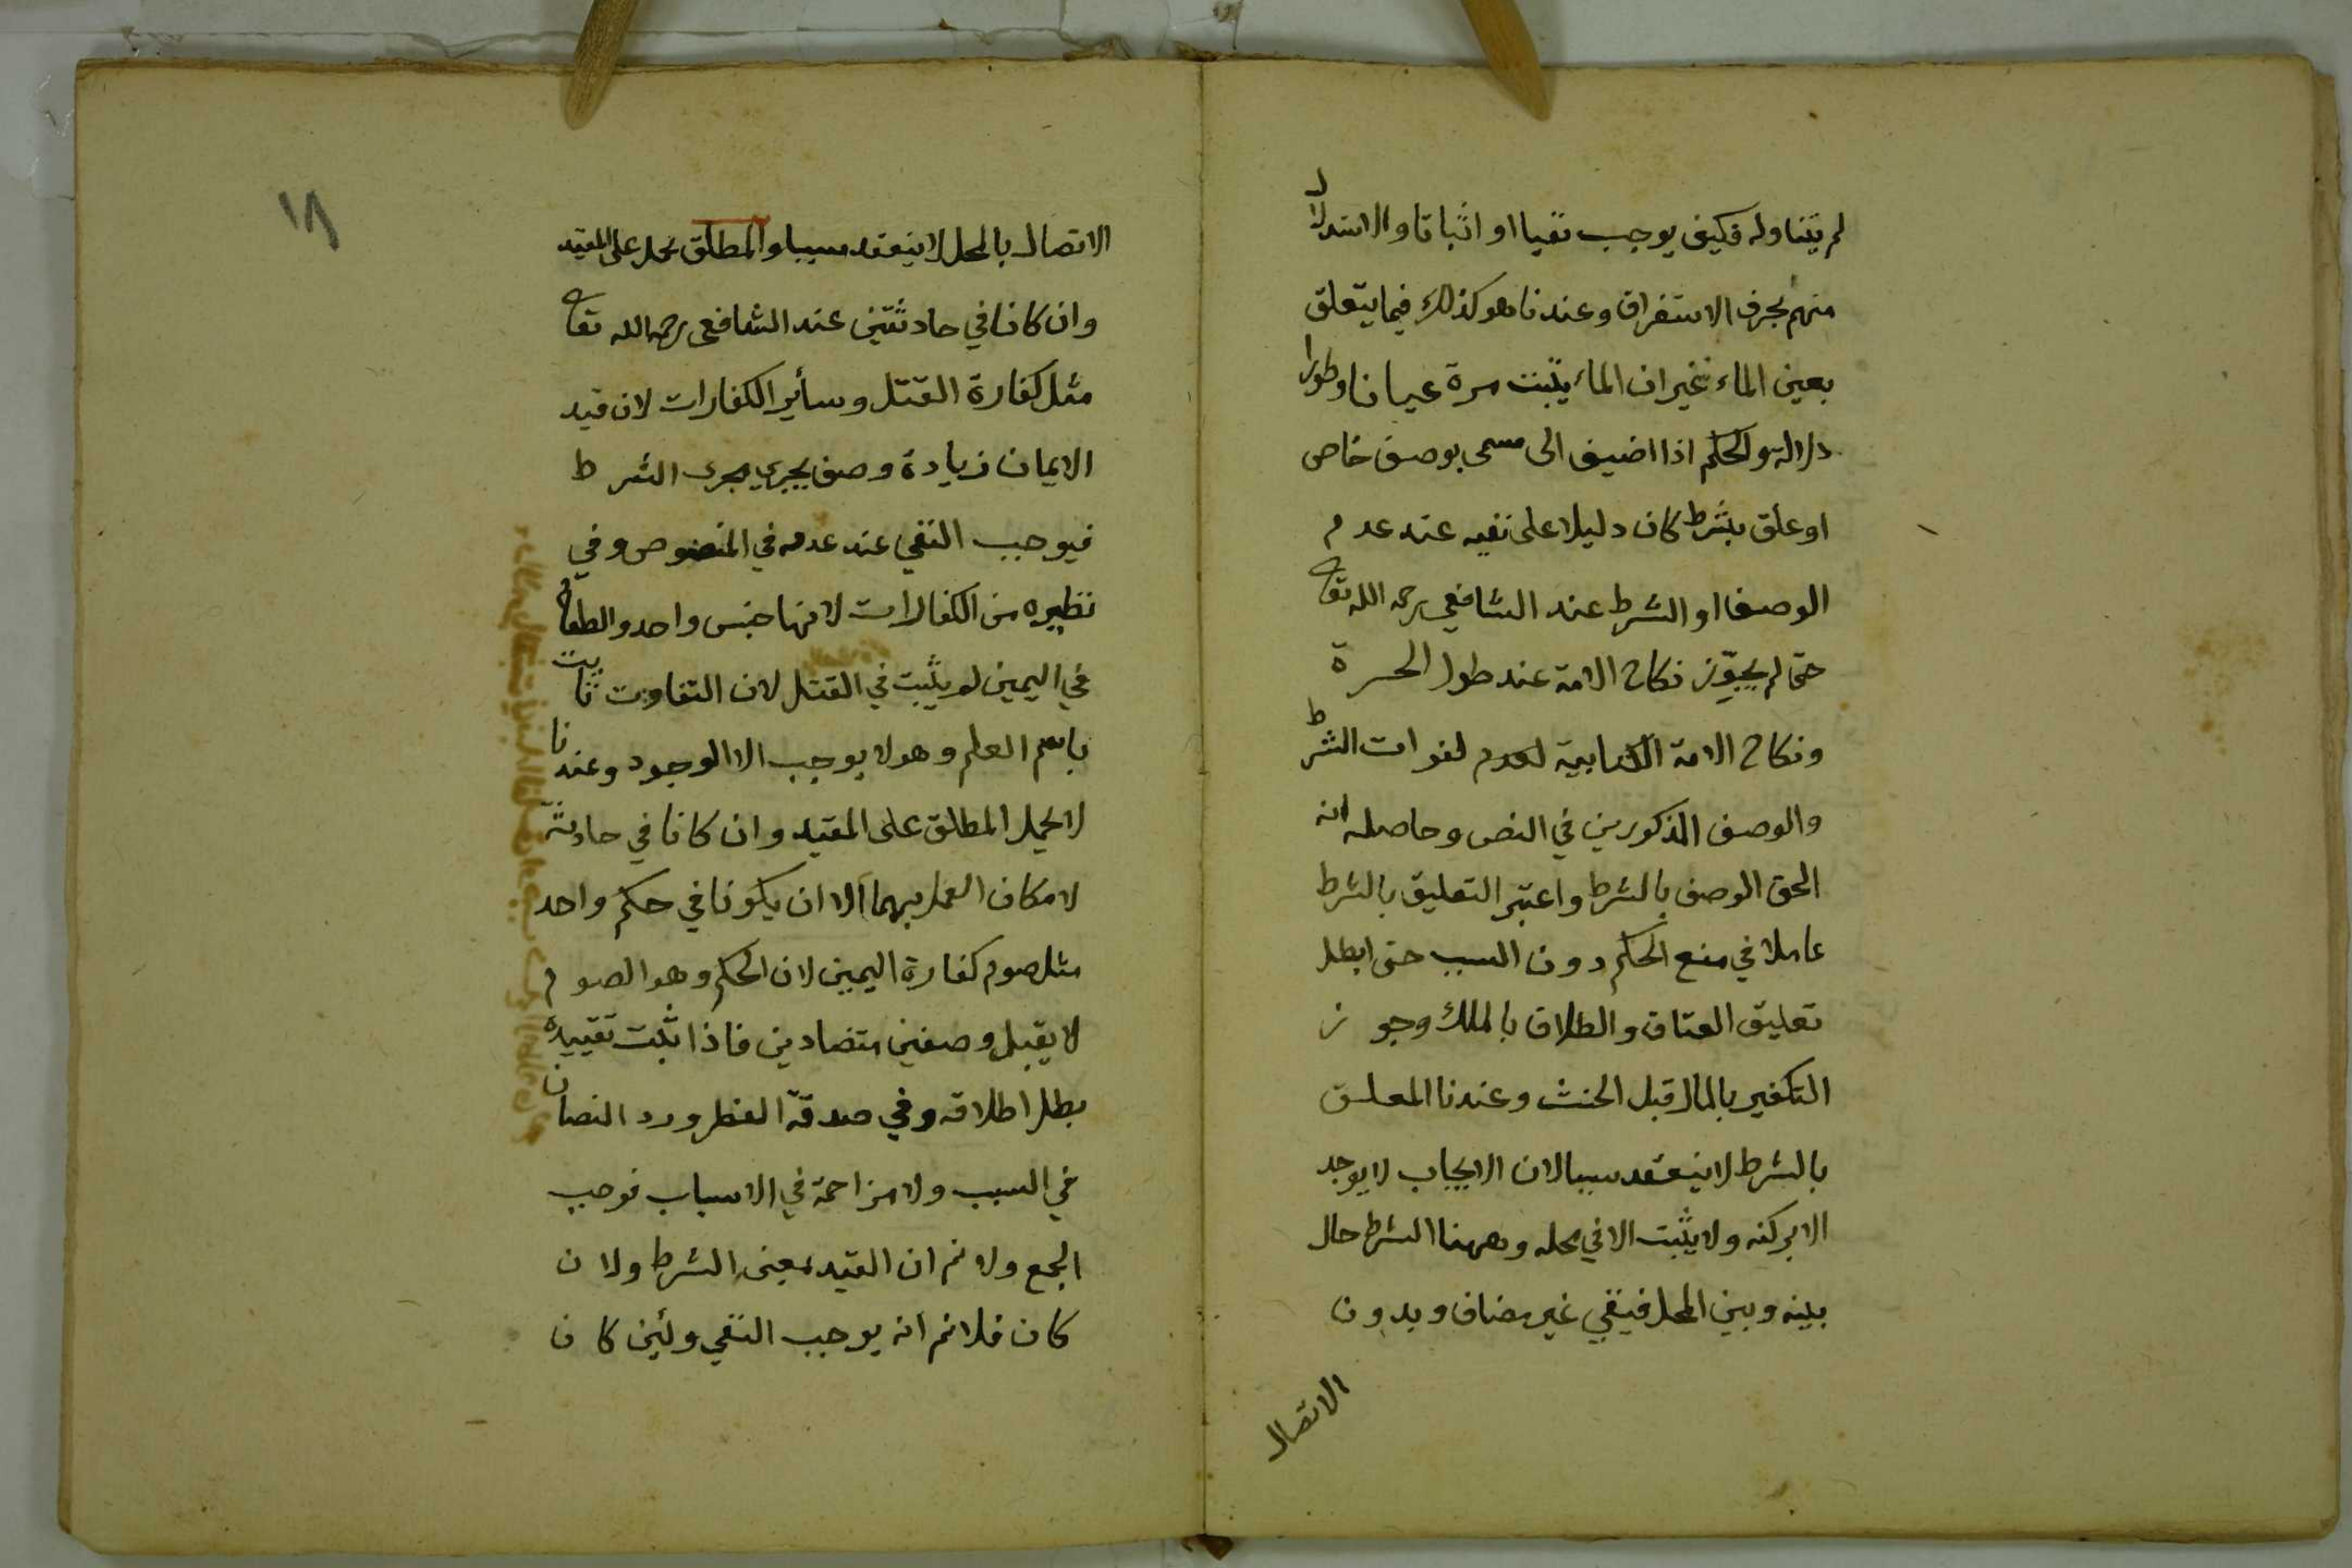 لم يتناوله فكيف يوجب نفيا او اثباتا والاستدلال
منهم بحرف الاستغراق وعندنا هو كذلك فيما يتعلق
بعين الماء غير ان الماء يثبت مرة عيانا وطورا
دلالة والحكم اذا اضيف الى مسمى بوصف خاص
او علق بشرط كان دليلا على نفيه عند عدم
الوصف او الشرط عند الشافعي رحمه الله تعا
حتى لم يجوّز نكاح الامة عند طول الحرة
ونكاح الامة الكتابية لعدم لفوات الشرط
والوصف المذكورين في النص وحاصله انه
الحق الوصف بالشرط واعتبر التعليق بالشرط
عاملا في منع الحكم دون السبب حتى ابطل
تعليق العتاق والطلاق بالملك وجوز
التكفير بالمال قبل الحنث وعندنا المعلق
بالشرط لا ينعقد سببا لان الايجاب لا يوجد
الا بركنه ولا يثبت الا في محله وههنا الشرط حال
بينه وبين المحل فيبقي غير مضاف وبدون
الاتصال
١٨
الاتصال بالمحل لا ينعقد سببا والمطلق يحمل على المقيد
وان كانا في حادثتين عند الشافعي رحمه الله تعا
مثل كفارة القتل وسأير الكفارات لان قيد
الايمان زيادة وصف يجري مجرى الشرط
فيوجب النفي عند عدمه في المنصوص وفي
نظيره من الكفارات لانها جنس واحد والطعام
في اليمين لم يثبت في القتل لان التفاوت ثابت
باسم العلم وهو لا يوجب الا الوجود وعندنا
لا يحمل المطلق على المقيد وان كانا في حادثة
لامكان العمل بهما الا ان يكونا في حكم واحد
مثل صوم كفارة اليمين لان الحكم وهو الصوم
لا يقبل وصفين متضادين فاذا ثبت تقييده
بطل اطلاقه وفي صدقة الفطر ورد النصان
في السبب ولا مزاحمة في الاسباب فوجب
الجمع ولا نم ان القيد بمعنى الشرط ولان
كان فلا نم انه يوجب النفي ولئن كان